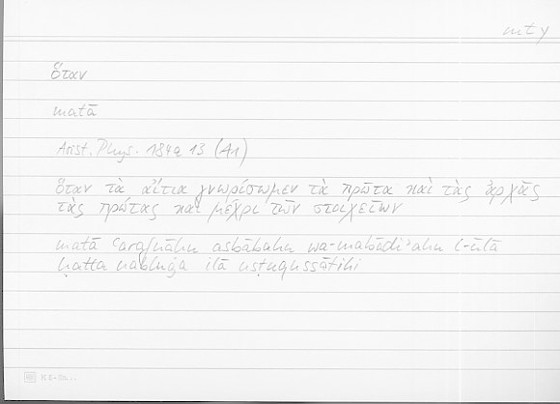 mty
ὅταν
matā
Arist. Phys. 184a 13 (A1)
ὅταν τὰ αἴτια γνωρίσωμεν τὰ πρῶτα καὶ τὰς ἀρχὰς
τὰς πρώτας καὶ μέχρι τῶν στοιχείων
matā ʿarafnāhu asbābahu wa-mabādiʾahu l-ūlā
ḥattā nabluġa ilā usṭuqussātihi